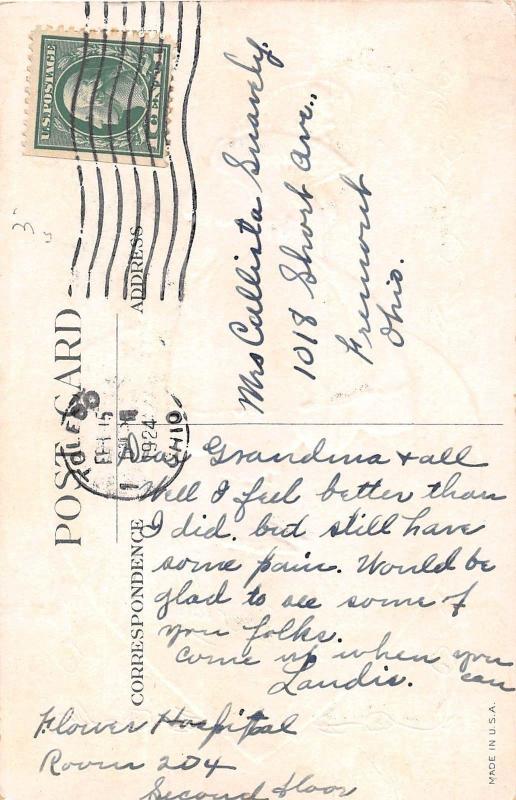 U.S. POSTAGE
CENT
POST CARD
ADDRESS
CORRESPONDENCE
TOLEDO
FEB 15
1924
OHIO
Mrs Callista Snavely.
1018 Short Ave.,
Fremont
Ohio.
Dear Grandma & all
Well I feel better than
I did. but still have
some pain. Would be
glad to see some of
you folks.
Come up when you
can
Landis.
Flower Hospital
Room 204
Second floor
MADE IN U.S.A.